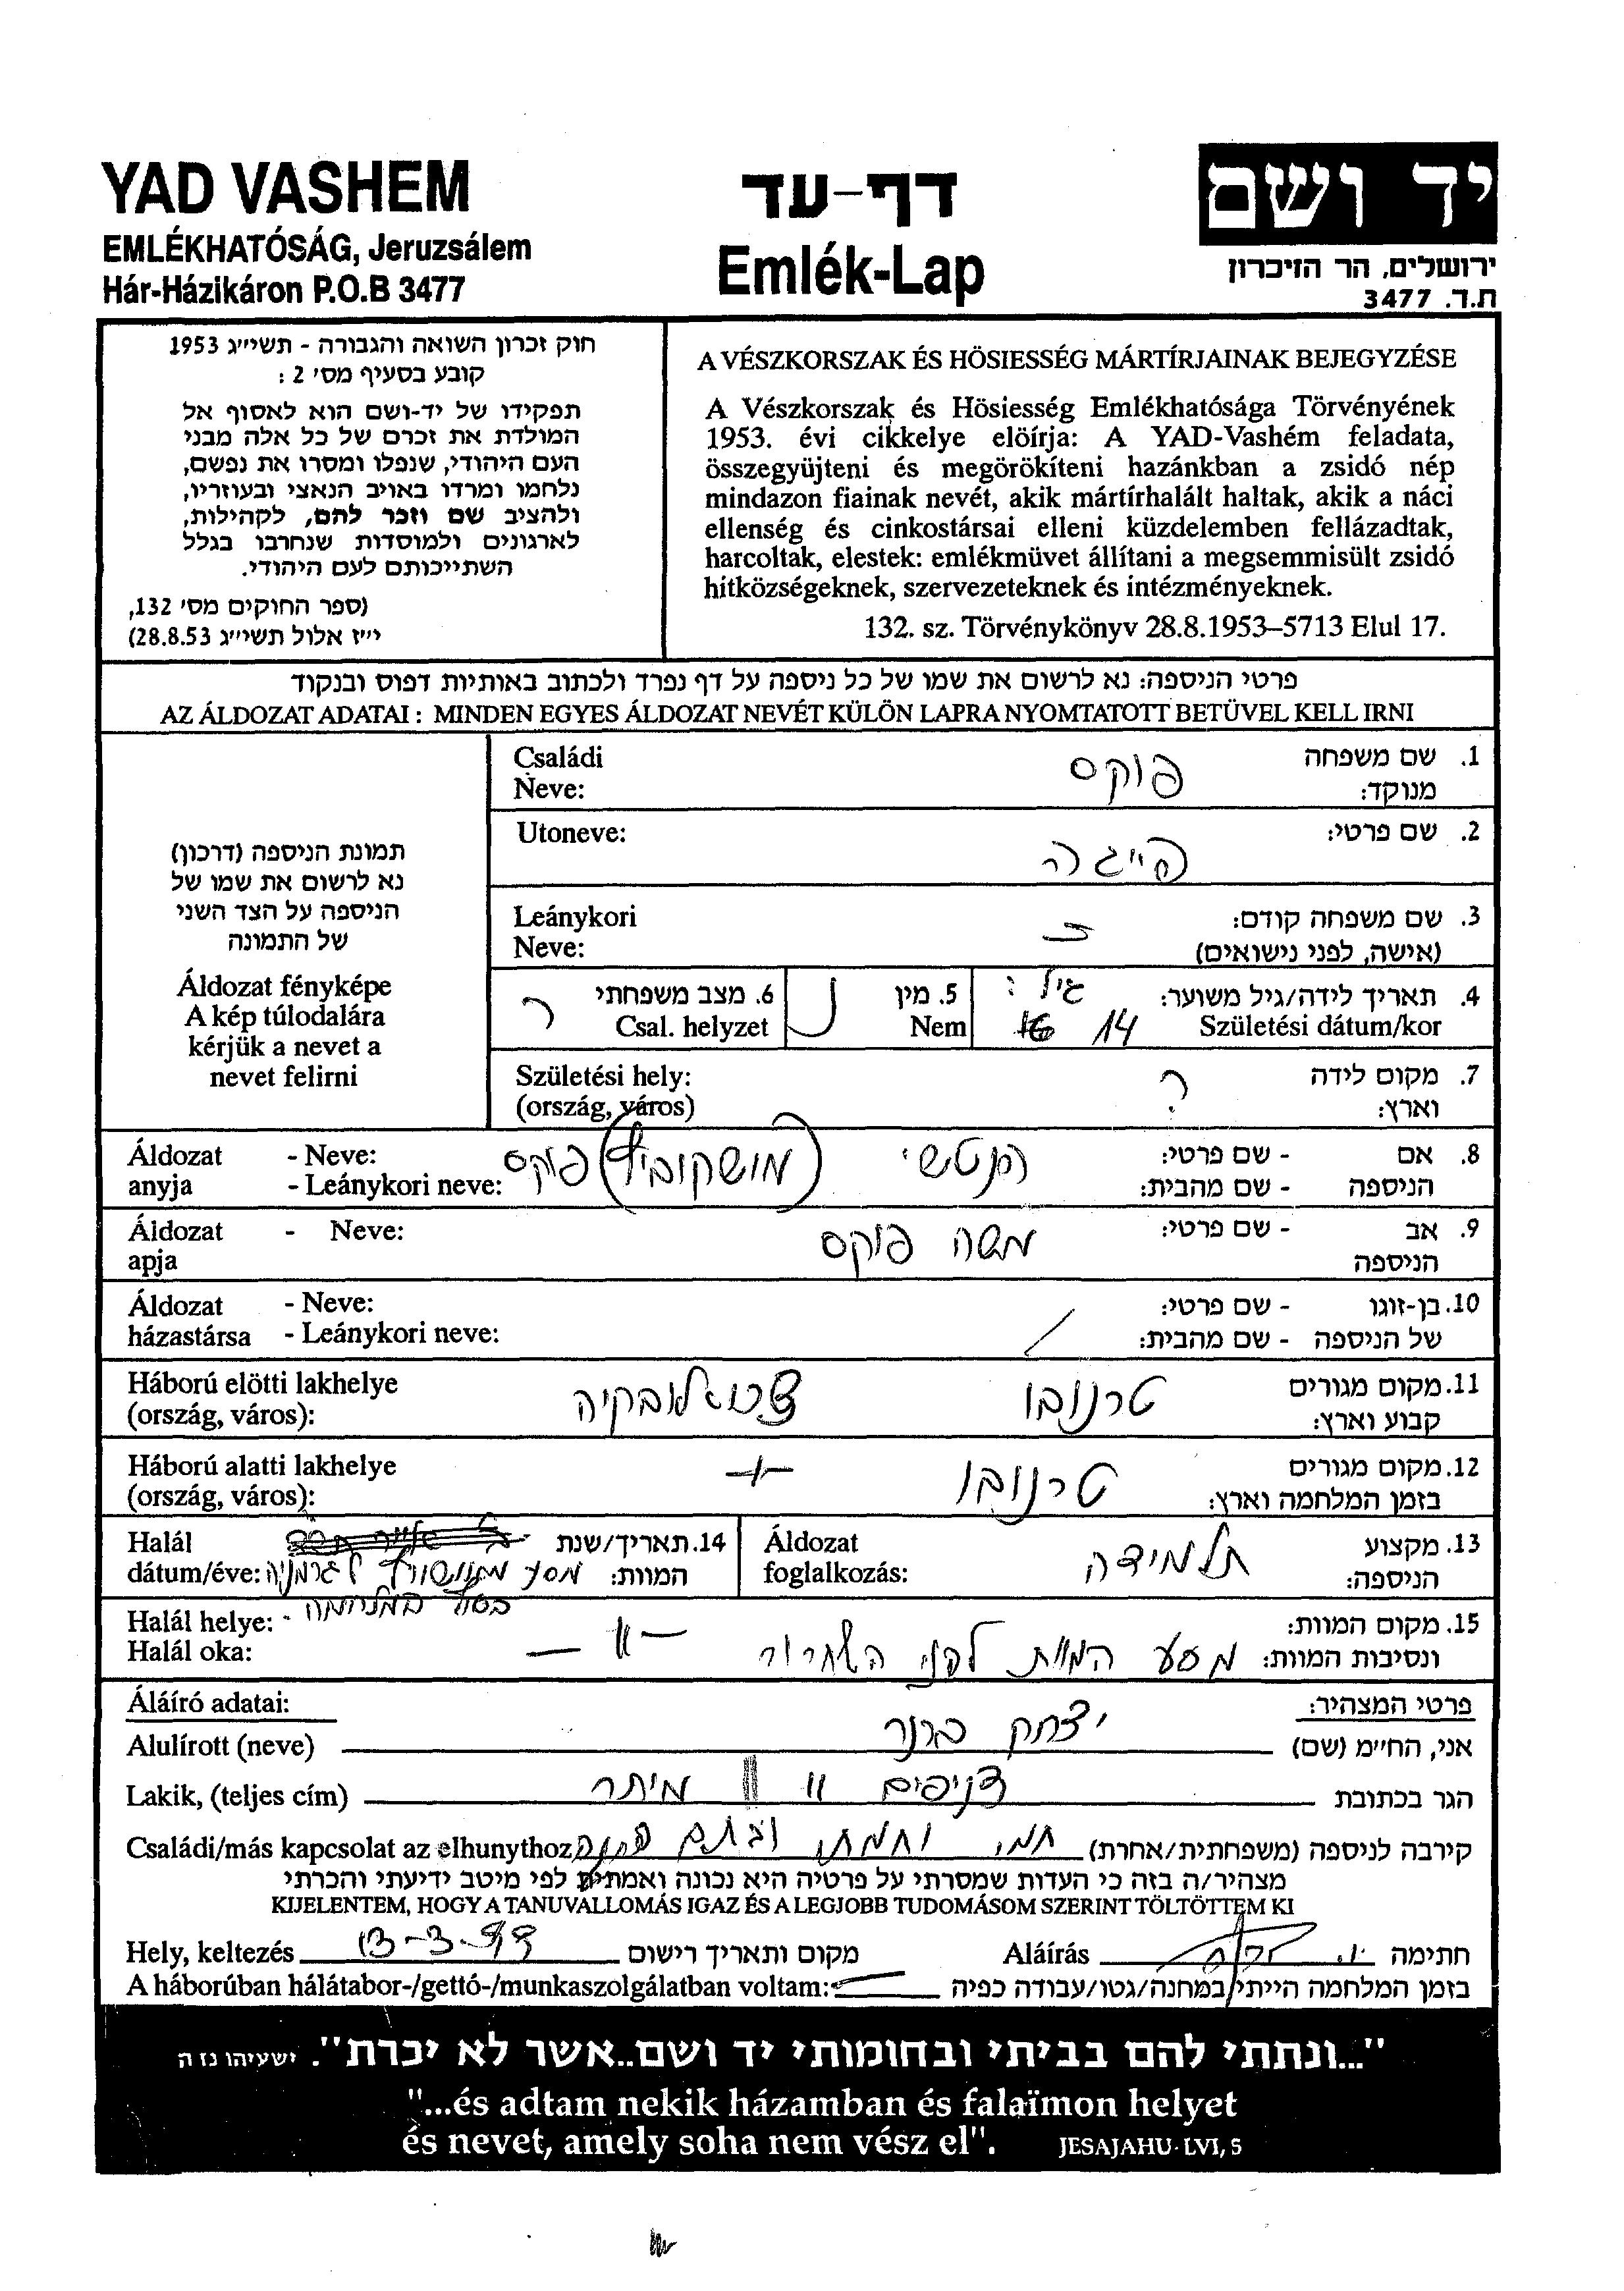 YAD VASHEM
EMLÉKHATÓSÁG, Jeruzsálem
Hár-Házikáron P.O.B 3477
דף-עד
Emlék-Lap
יד ושם
ירושלים, הר הזיכרון
ת.ד. 3477
חוק זכרון השואה והגבורה - תשי״ג 1953
קובע בסעיף מס׳ 2 :
תפקידו של יד-ושם הוא לאסוף אל
המולדת את זכרם של כל אלה מבני
העם היהודי, שנפלו ומסרו את נפשם,
נלחמו ומרדו באויב הנאצי ובעוזריו,
ולהציב שם וזכר להם, לקהילות,
לארגונים ולמוסדות שנחרבו בגלל
השתייכותם לעם היהודי.
(ספר החוקים מס׳ 132,
י״ז אלול תשי״ג 28.8.53)
A VÉSZKORSZAK ÉS HÖSIESSÉG MÁRTÍRJAINAK BEJEGYZÉSE
A Vészkorszak és Hösiesség Emlékhatósága Törvényének
1953. évi cikkelye elöírja: A YAD-Vashém feladata,
összegyüjteni és megörökíteni hazánkban a zsidó nép
mindazon fiainak nevét, akik mártírhalált haltak, akik a náci
ellenség és cinkostársai elleni küzdelemben fellázadtak,
harcoltak, elestek: emlékmüvet állítani a megsemmisült zsidó
hitközségeknek, szervezeteknek és intézményeknek.
132. sz. Törvénykönyv 28.8.1953–5713 Elul 17.
פרטי הניספה: נא לרשום את שמו של כל ניספה על דף נפרד ולכתוב באותיות דפוס ובנקוד
AZ ÁLDOZAT ADATAI : MINDEN EGYES ÁLDOZAT NEVÉT KÜLÖN LAPRA NYOMTATOTT BETÜVEL KELL IRNI
תמונת הניספה (דרכון)
נא לרשום את שמו של
הניספה על הצד השני
של התמונה
Áldozat fényképe
A kép túlodalára
kérjük a nevet a
nevet felirni
1. שם משפחה פוקס Családi
מנוקד: Neve:
2. שם פרטי: פייגה Utoneve:
3. שם משפחה קודם: Leánykori
(אישה, לפני נישואים) Neve:
4. תאריך לידה/גיל משוער: גיל :
Születési dátum/kor 14
5. מין נ
Nem
6. מצב משפחתי ר
Csal. helyzet
7. מקום לידה ? Születési hely:
וארץ: (ország, város)
8. אם - שם פרטי: (מושקוביץ) פוקס Áldozat - Neve:
הניספה - שם מהבית: anyja - Leánykori neve:
9. אב - שם פרטי: משה פוקס Áldozat - Neve:
הניספה apja
10. בן-זוגו - שם פרטי: Áldozat - Neve:
של הניספה - שם מהבית: házastársa - Leánykori neve:
11. מקום מגורים טרנובו Háború elötti lakhelye
קבוע וארץ: (ország, város):
12. מקום מגורים טרנובו Háború alatti lakhelye
בזמן המלחמה וארץ: (ország, város):
13. מקצוע תלמידה Áldozat
הניספה: foglalkozás:
14. תאריך/שנת Halál
המוות: לגרמניה dátum/éve:
בסוף המלחמה
15. מקום המוות: Halál helye:
ונסיבות המוות: מסע המוות לפני השחרור — " — Halál oka:
פרטי המצהיר: Áláíró adatai:
אני, החי״מ (שם) יצחק Alulírott (neve)
הגר בכתובת 11 מיתר Lakik, (teljes cím)
קירבה לניספה (משפחתית/אחרת) Családi/más kapcsolat az elhunythoz
מצהיר/ה בזה כי העדות שמסרתי על פרטיה היא נכונה ואמתית לפי מיטב ידיעתי והכרתי
KIJELENTEM, HOGY A TANUVALLOMÁS IGAZ ÉS A LEGJOBB TUDOMÁSOM SZERINT TÖLTÖTTEM KI
Hely, keltezés 13-3-99 מקום ותאריך רישום Aláírás חתימה
A háborúban hálátabor-/gettó-/munkaszolgálatban voltam: בזמן המלחמה הייתי במחנה/גטו/עבודה כפיה
"...ונתתי להם בביתי ובחומותי יד ושם..אשר לא יכרת". ישעיהו נז ה
"...és adtam nekik házamban és falaïmon helyet
és nevet, amely soha nem vész el". JESAJAHU- LVI, 5